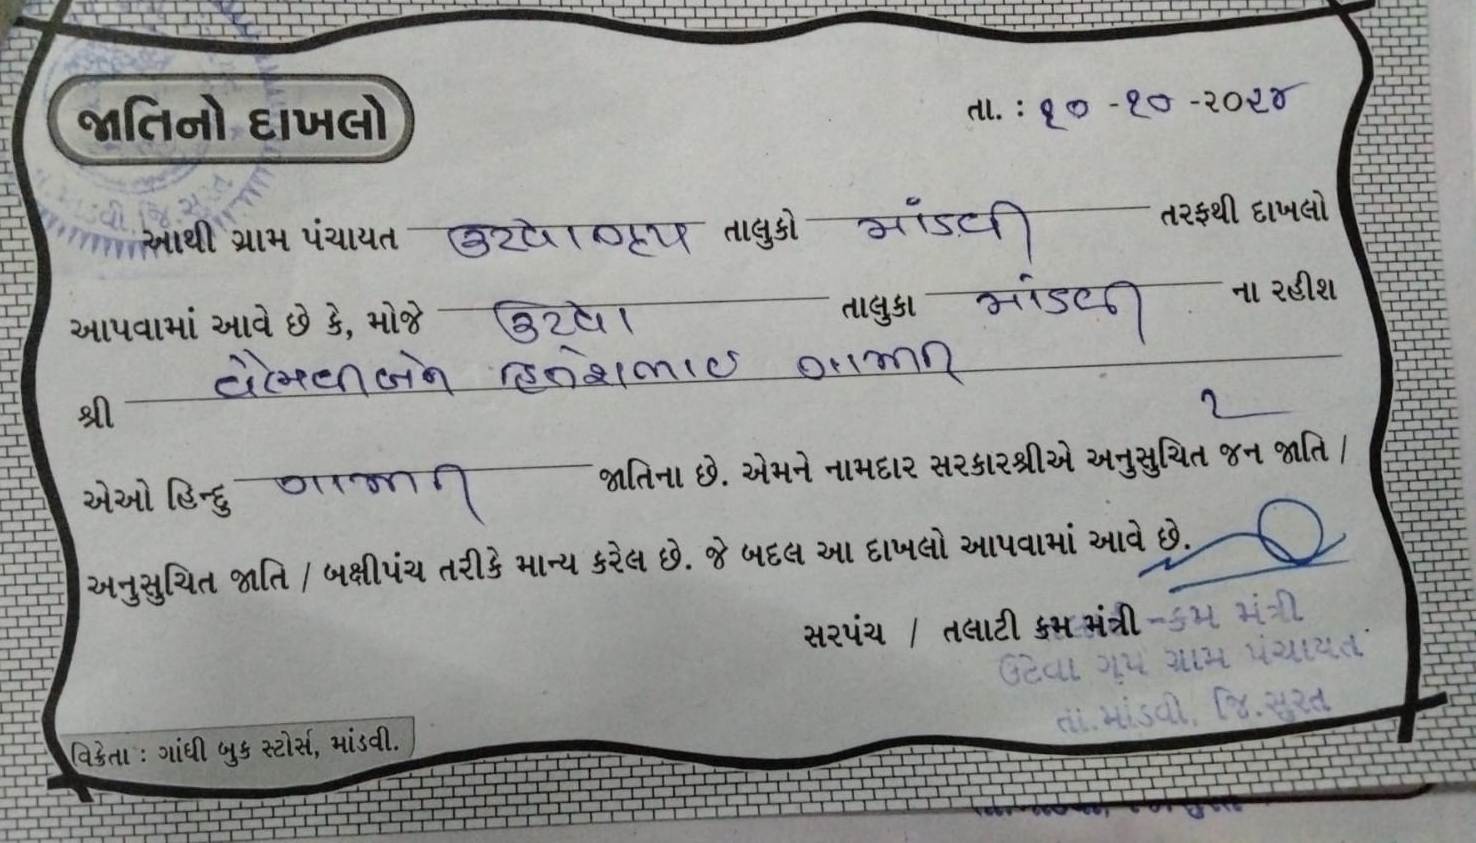 જાતિનો દાખલો
તા. : ૧૦ -૧૦ -૨૦૨૪
આથી ગ્રામ પંચાયત ઉટેવા ગૃપ તાલુકો માંડવી તરફથી દાખલો
આપવામાં આવે છે કે, મોજે ઉટેવા તાલુકા માંડવી ના રહીશ
શ્રી વૈભવીબેન હિતેશભાઇ ગામીત
એઓ હિન્દુ ગામીત જાતિના છે. એમને નામદાર સરકારશ્રીએ અનુસુચિત જન જાતિ /
અનુસુચિત જાતિ / બક્ષીપંચ તરીકે માન્ય કરેલ છે. જે બદલ આ દાખલો આપવામાં આવે છે.
સરપંચ / તલાટી ક્રમ મંત્રી -કમ મંત્રી
ઉટેવા ગૃપ ગ્રામ પંચાયત
તા.માંડવી, જિ.સુરત
વિક્રેતા : ગાંધી બુક સ્ટોર્સ, માંડવી.